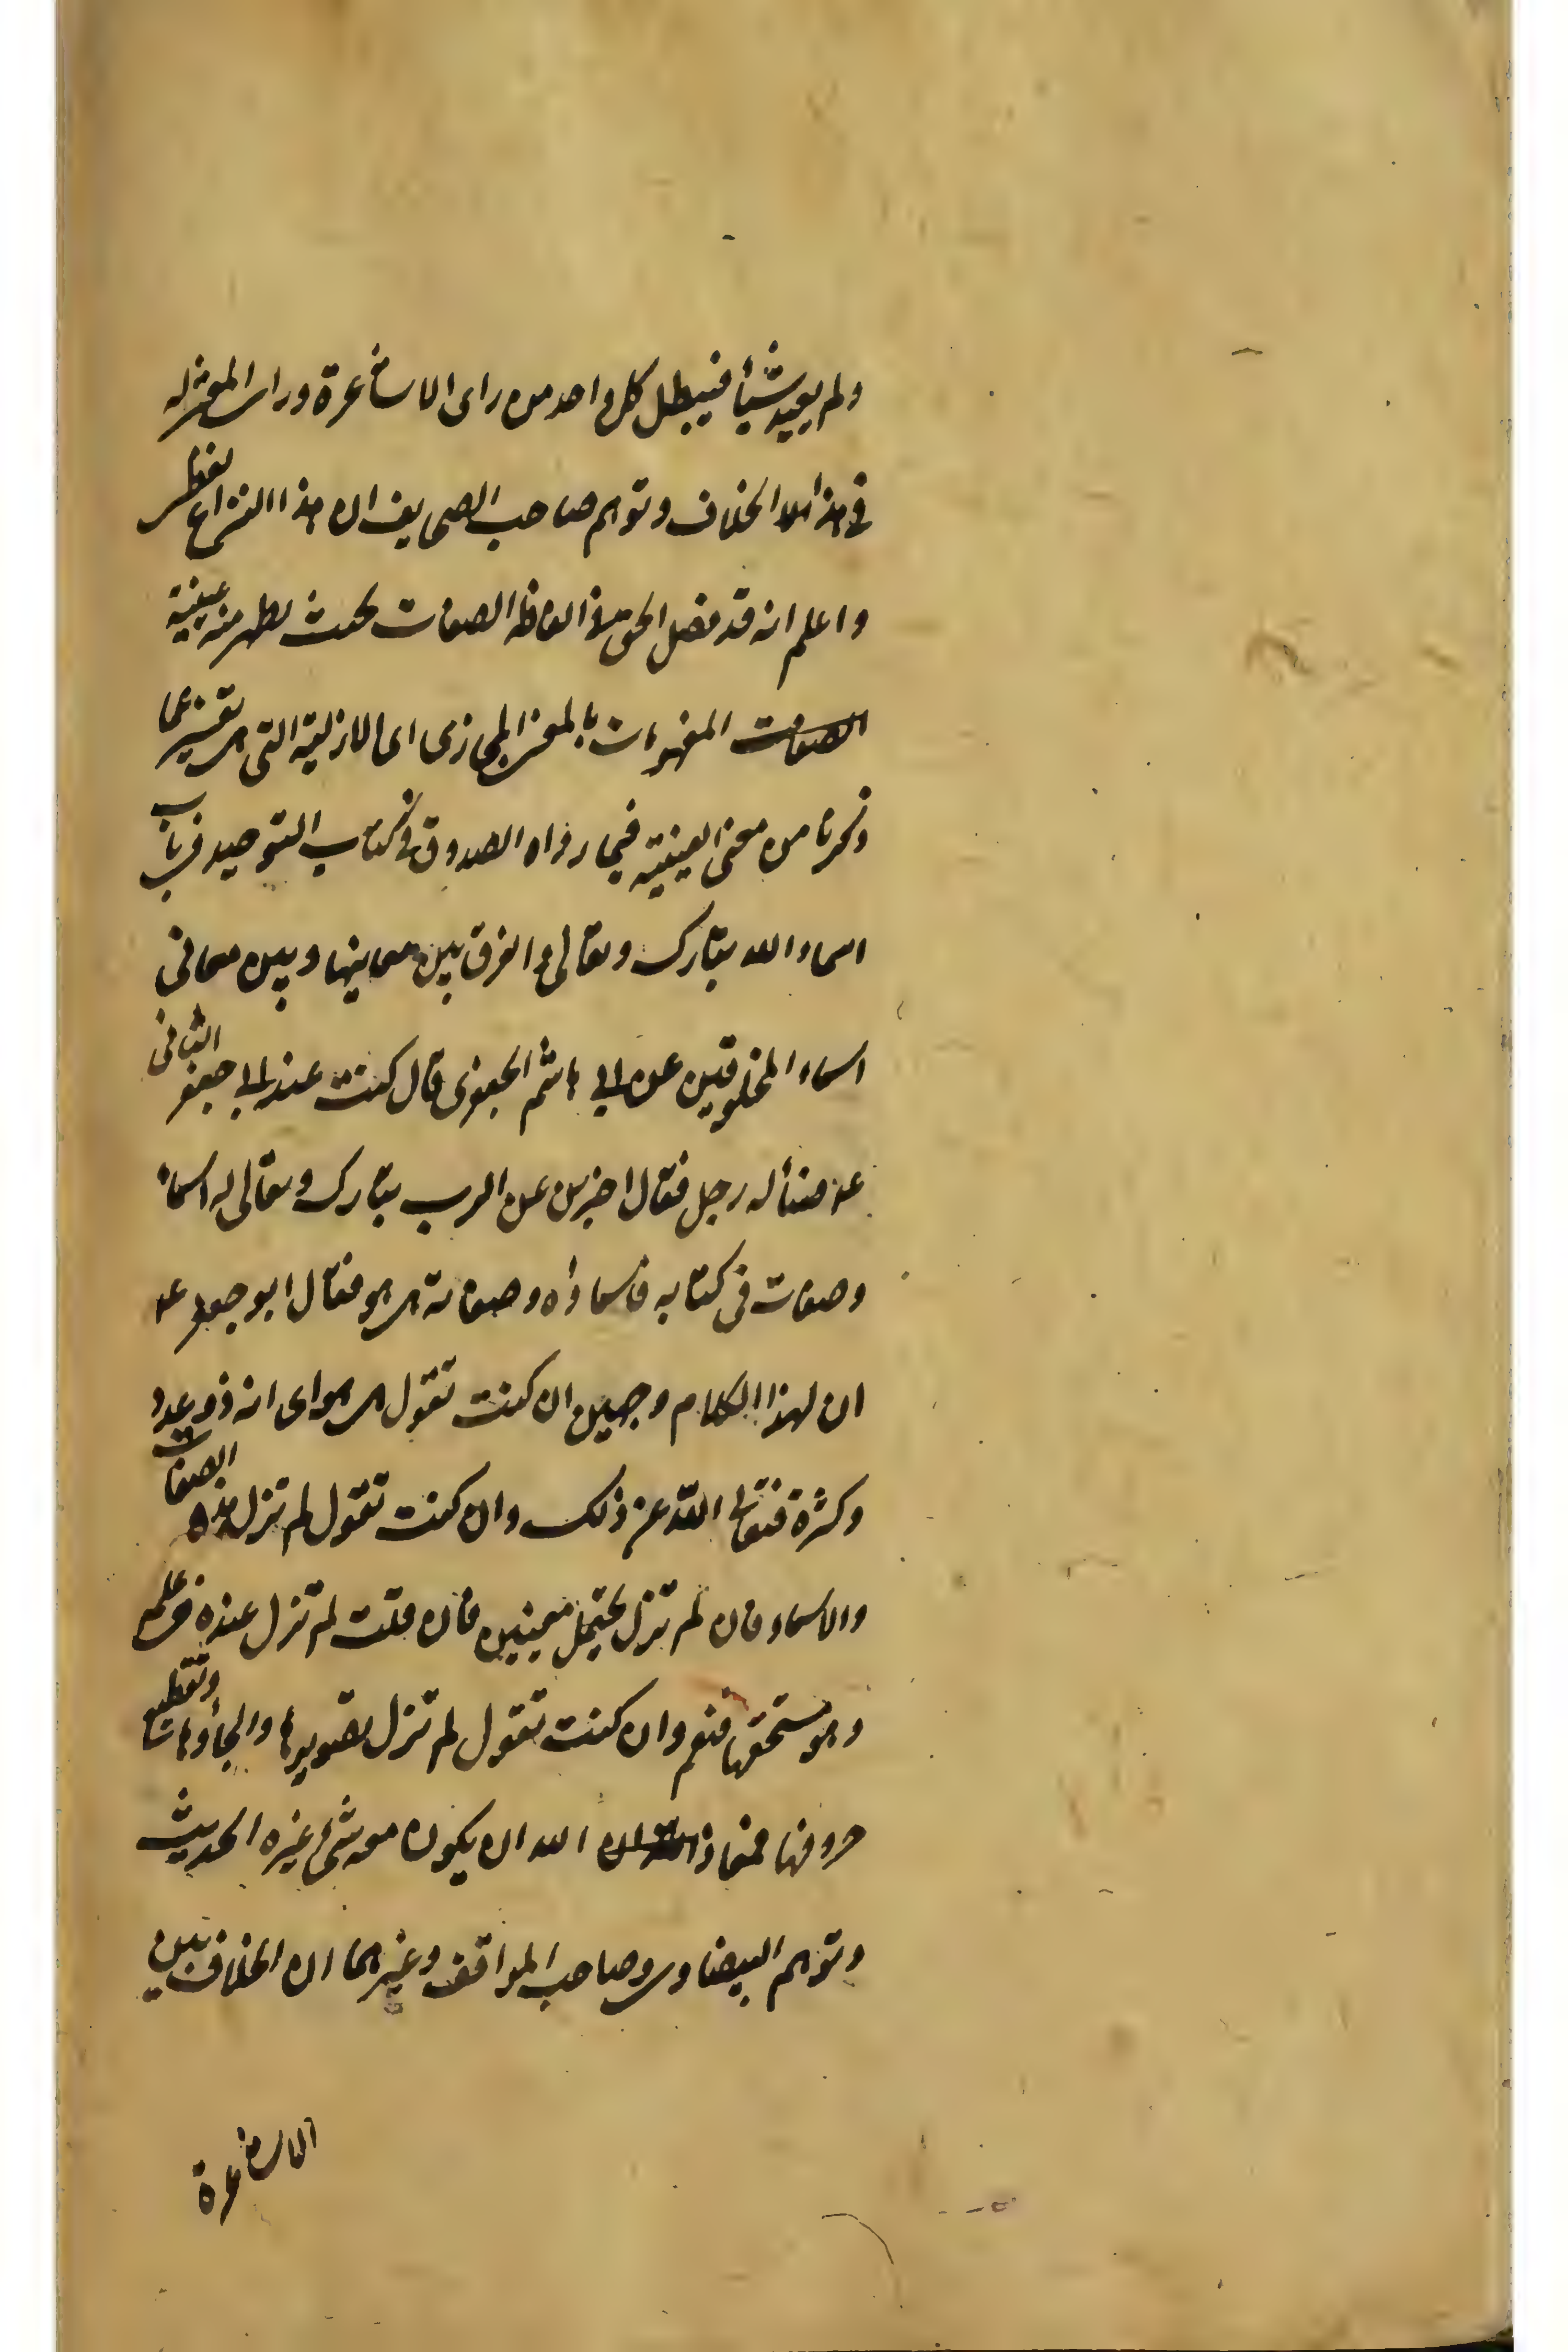 ولم يعيد شيئاً فيبطل كل واحد من راى الاشاعرة وراى المعتزله
فى هذا الخلاف وتوهم صاحب الصحايف ان هذا النزاع لفظى
واعلم انه قد فصل الحق الفاظ الصفات بحيث يظهر منه عينية
الصفات المفهومات بالمعنى المجازى اى الازلية التى هى تفسير بما
ذكرنا من معنى العينية فيما رواه الصدوق فى كتاب التوحيد فى باب
اسماء الله تبارك وتعالى والفرق بين معانيها وبين معانى
اسماء المخلوقين عن ابى هاشم الجعفرى قال كنت عند ابى جعفر الثانى
عه فسأله رجل فقال اخبرنى عن الرب تبارك وتعالى له اسماء
وصفات فى كتابه فاسماؤه وصفاته هى هو فقال ابو جعفر عه
ان لهذا الكلام وجهين ان كنت تقول هى هو اى انه ذو عدد
وكثرة فتعالى الله عن ذلك وان كنت تقول لم تزل هذه الصفات
والاسماء فان لم تزل يحتمل معنيين فان قلت لم تزل عنده فى علمه
وهو مستحقها فنعم وان كنت تقول لم تزل تصويرها والجأوها وتقطيع
حروفها فمعاذ الله ان يكون معه شئ غيره الحديث
وتوهم البيضاوى وصاحب المواقف وغيرهما ان الخلاف بين
الاشاعرة